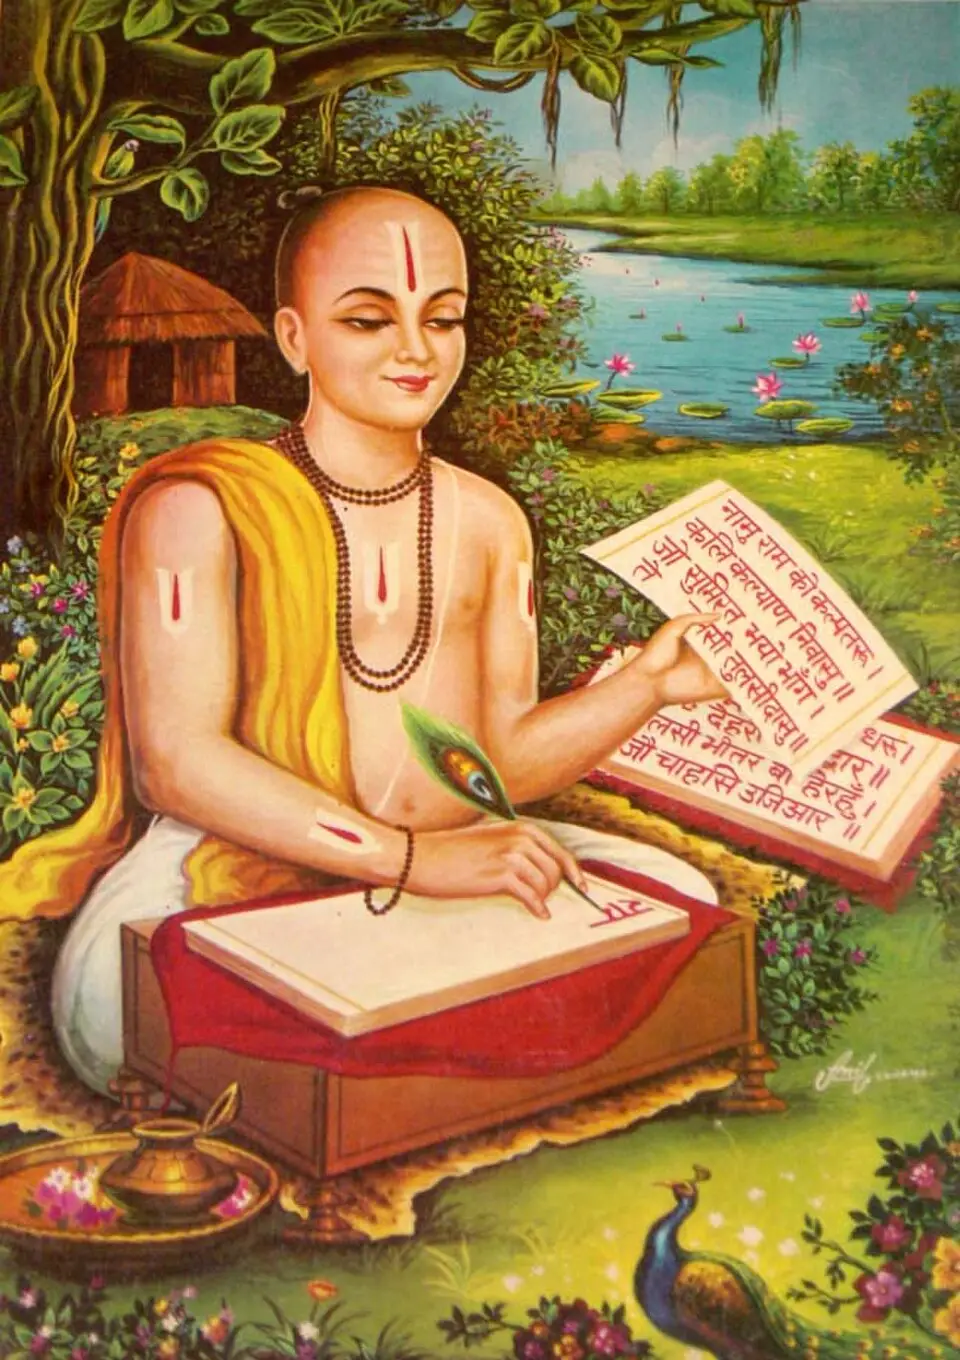 नामु राम को कल्पतरू ।
कलि कल्याण निवासु ॥
जो सुमिरत भयो भाँग ।
तें सी तुलसीदासु ॥
धरू ।
लसी भीतर बा हेरहुँ ।
जौ चाहसि उजिआर ॥